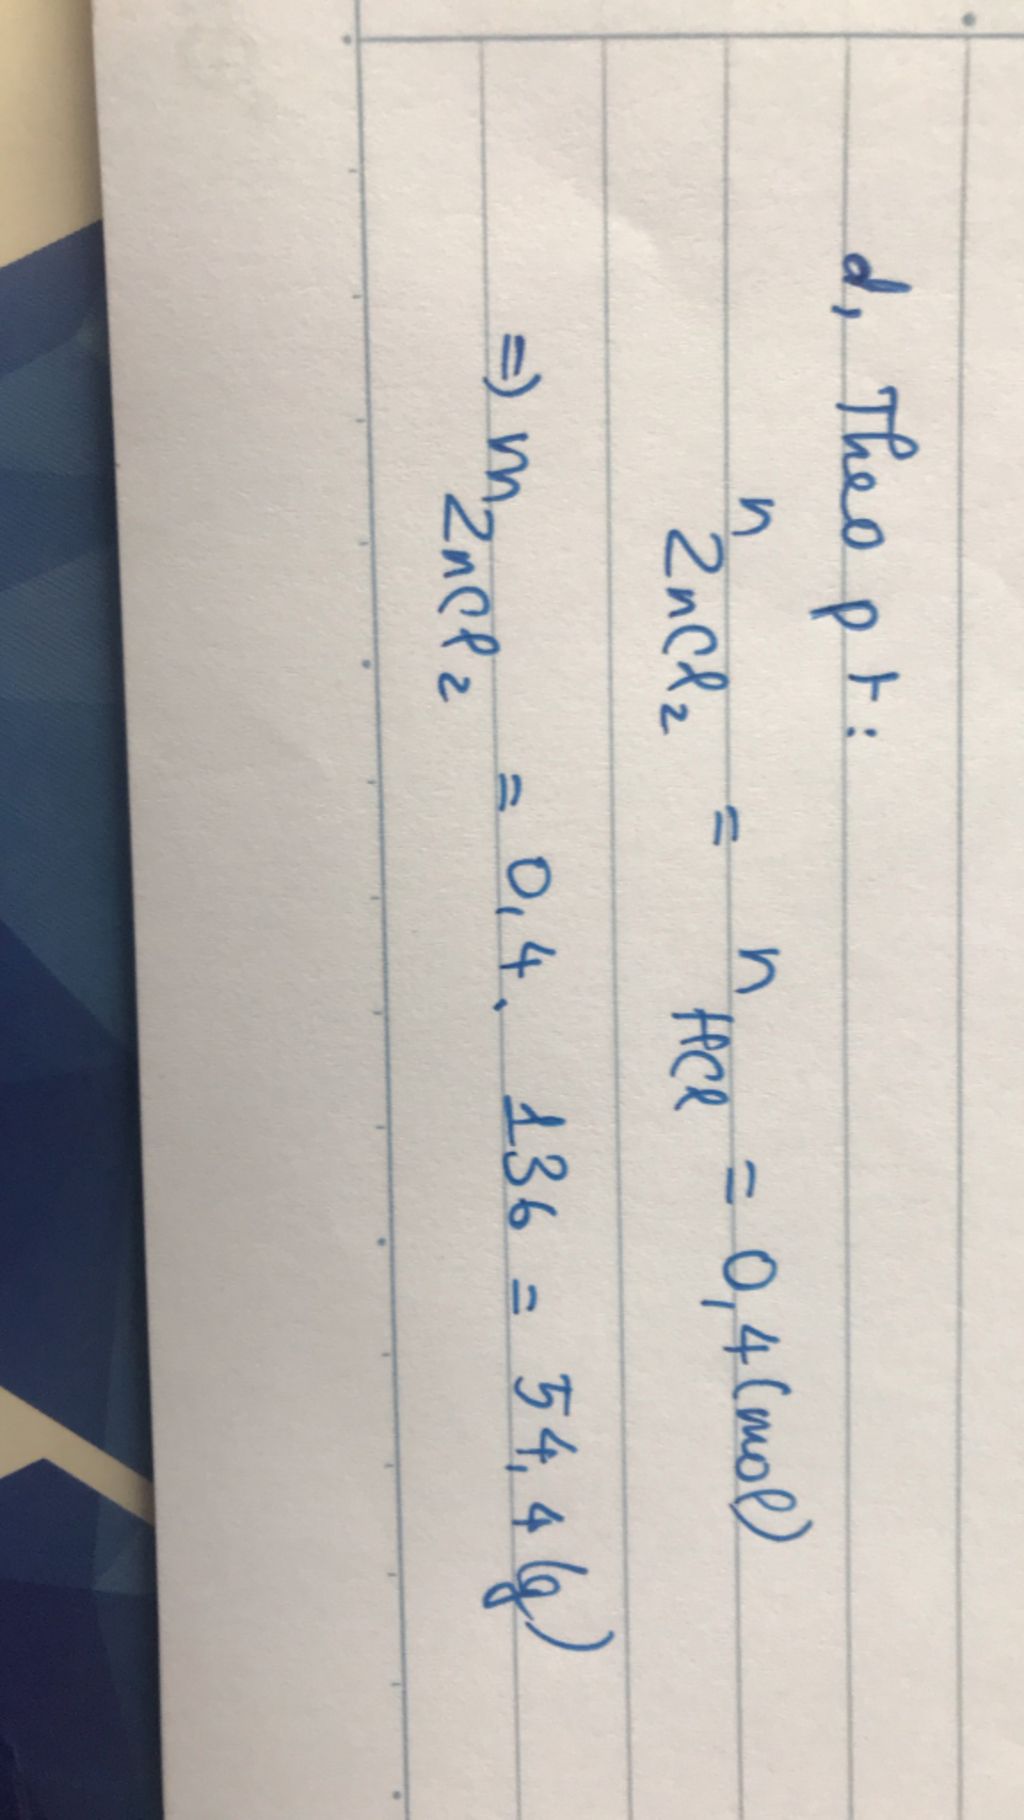 d, Theo pt:
n ZnCl₂ = n HCl = 0,4 (mol)
=) m ZnCl₂ = 0,4 . 136 = 54,4 (g)